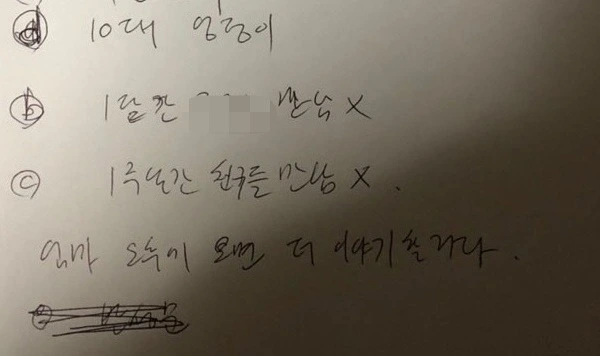 ⓐ 10대 엉덩이
ⓑ 1달간 만남 X
ⓒ 1주일간 친구들 만남 X.
엄마 오후에 오면 더 이야기 할거다.